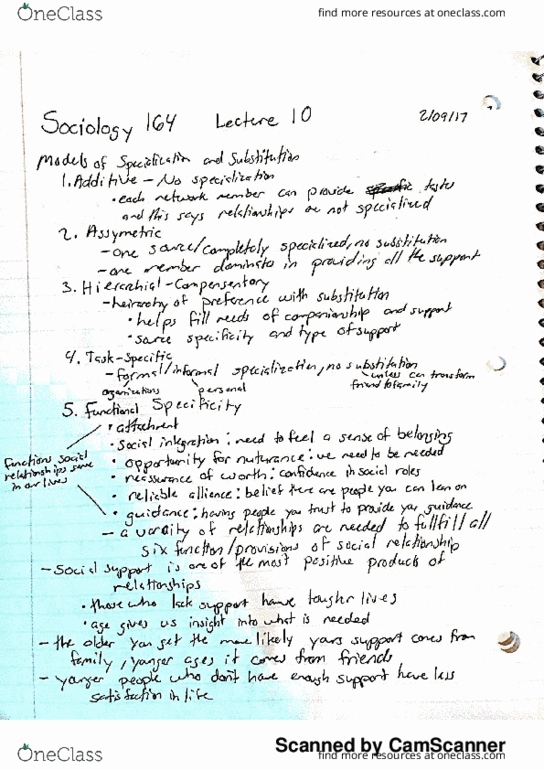 OneClass
find more resources at oneclass.com
Sociology 164 Lecture 10 2/09/17
Models of Specialization and Substitution
1. Additive - No specialization
• each network member can provide tasks
and this says relationships are not specialized
2. Assymetric
- one source/completely specialized, no substitution
- one member dominates in providing all the support
3. Hierarchial - Compensatory
- heirarchy of preference with substitution
• helps fill needs of companionship and support
• source specificity and type of support
4. Task-Specific
- formal/informal specialization, no substitution
organizations personal unless can transform
friend to family
5. Functional Specificity
• attachment
• social integration: need to feel a sense of belonging
functions social
relationships serve
in our lives
• opportunity for nuturance: we need to be needed
• reassurance of worth: confidence in social roles
• reliable allience: belief there are people you can lean on
• guidance: having people you trust to provide you guidance
- a varaity of relationships are needed to fullfill all
six function/provisions of social relationship
- Social support is one of the most positive products of
relationships
• those who lack support have tougher lives
• age gives us insight into what is needed
- the older you get the more likely yours support comes from
family, yonger ages it comes from friends
- yonger people who don't have enough support have less
satisfaction in life
Scanned by CamScanner
OneClass
find more resources at oneclass.com